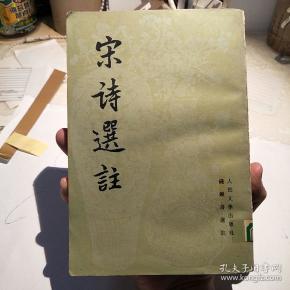 宋诗選註
人民文学出版社
錢鍾書選註
孔夫子旧书网